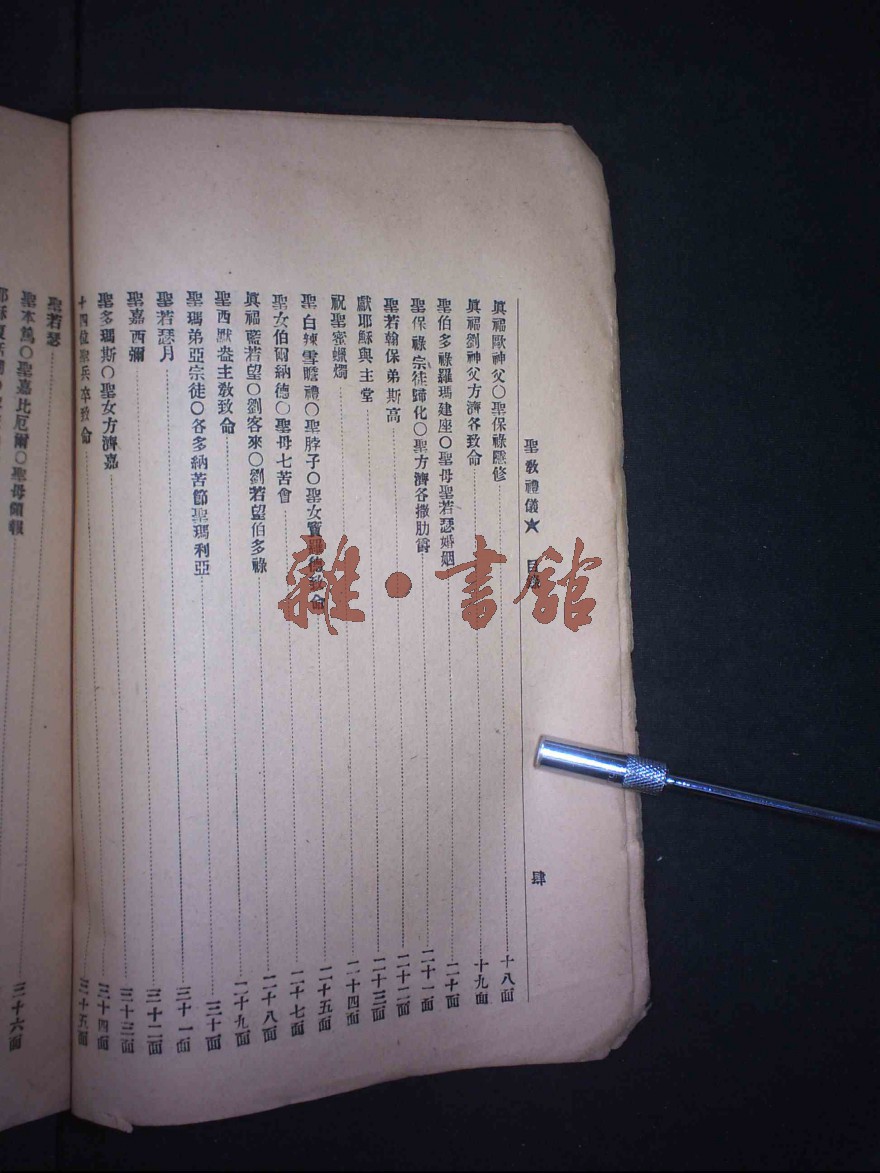 聖教禮儀★ 目錄 肆
眞福歐神父〇聖保祿隱修 十八面
眞福劉神父方濟各致命 十九面
聖伯多祿羅瑪建座〇聖母聖若瑟婚姻 二十面
聖保祿宗徒歸化〇聖方濟各撒肋爵 二十一面
聖若翰保弟斯高 二十二面
獻耶穌與主堂 二十三面
祝聖蜜蠟燭 二十四面
聖白辣雪瞻禮〇聖脖子〇聖女寶羅德致命 二十五面
聖女伯爾納德〇聖母七苦會 二十七面
眞福藍若望〇劉客來〇劉若望伯多祿 二十八面
聖西默盎主敎致命 二十九面
聖瑪弟亞宗徒〇各多納苦節聖瑪利亞 三十面
聖若瑟月 三十一面
聖嘉西彌 三十二面
聖多瑪斯〇聖女方濟嘉 三十三面
十四位聖兵卒致命 三十四面
聖若瑟 三十五面
聖本篤〇聖嘉比厄爾〇聖母領報 三十六面
雜·書館